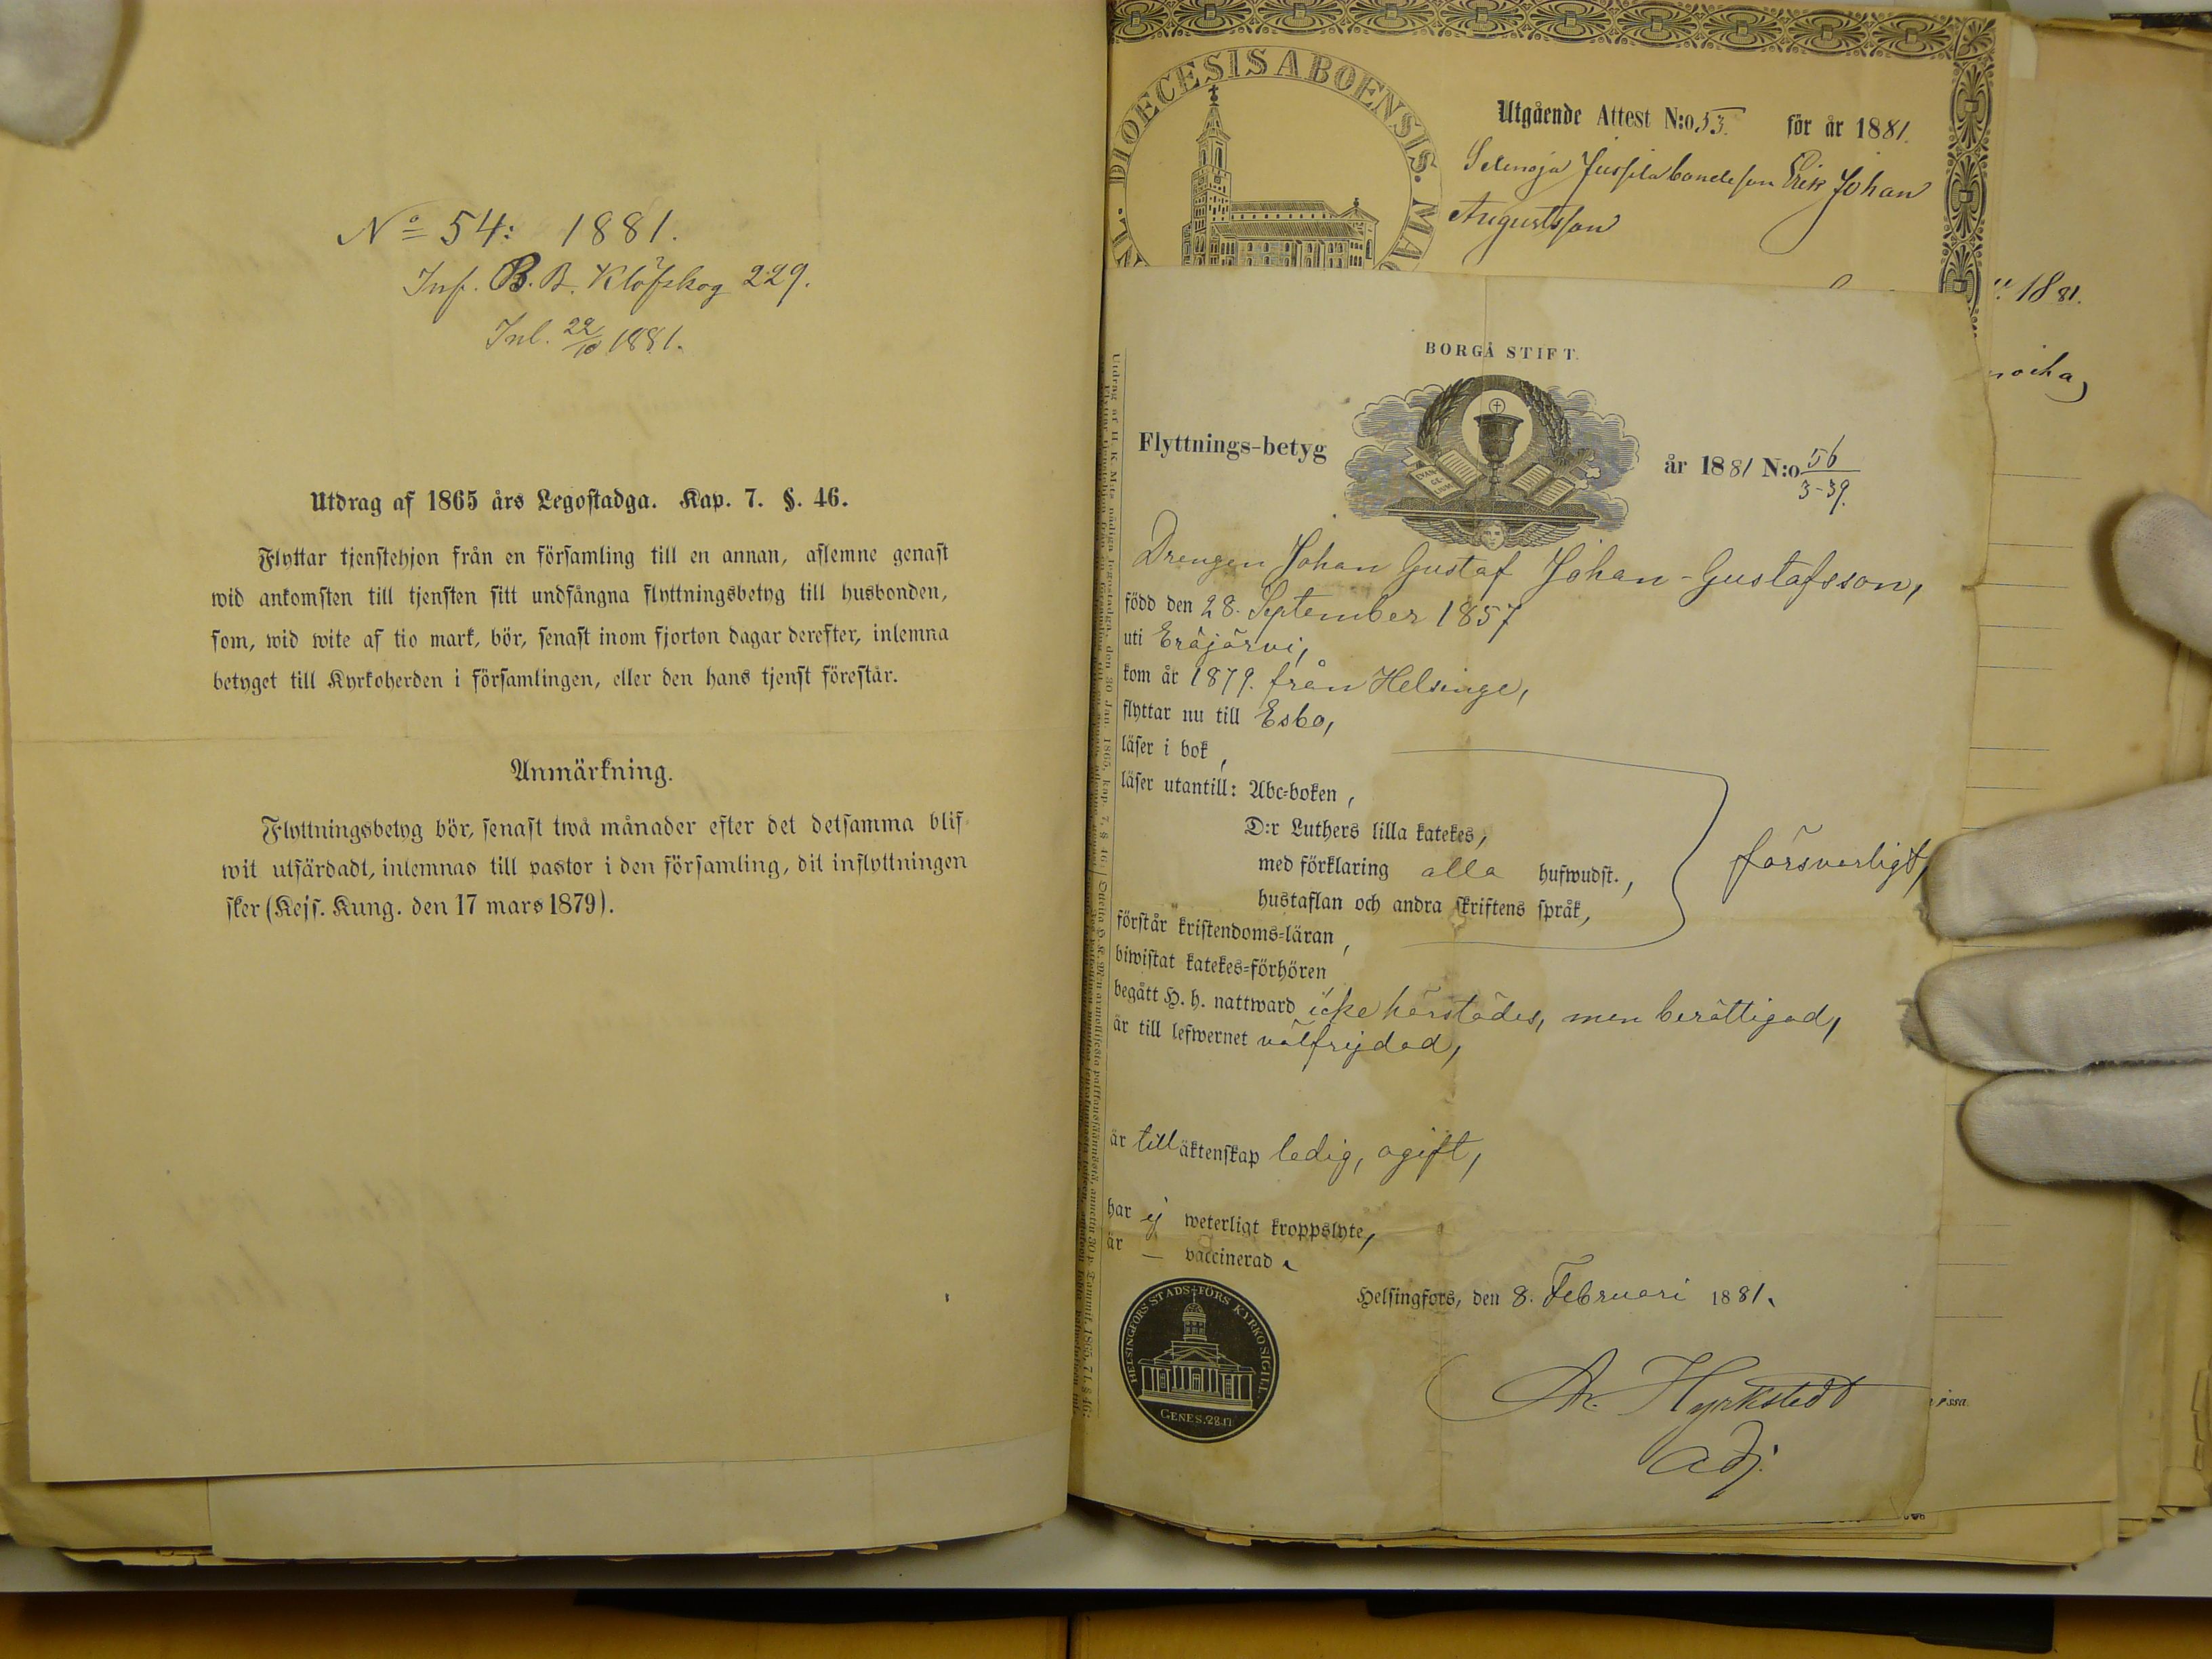 No 54: 1881.
Inf. B. B. Klöfskog 229.
Inl. 22/10 1881.
Utdrag af 1865 års Legostadga. Kap. 7. §. 46.
Flyttar tjenstehjon från en församling till en annan, aflemne genast
wid ankomsten till tjensten sitt undfångna flyttningsbetyg till husbonden,
som, wid wite af tio mark, bör, senast inom fjorton dagar derefter, inlemna
betyget till Kyrkoherden i församlingen, eller den hans tjenst förestår.
Anmärkning.
Flyttningsbetyg bör, senast twå månader efter det detsamma blif-
wit utfärdadt, inlemnas till pastor i den församling, dit inflyttningen
sker (Kejs. Kung. den 17 mars 1879).
DIOECESIS ABOENSIS. MAG
Utgående Attest N:o 53. för år 1881.
bondeson Erik Johan
Augustsson
1881.
BORGÅ STIFT.
Flyttnings-betyg år 1881 N:o 56
3-39.
EVAN-
GE-
LIUM
Drengen Johan Gustaf Johan-Gustafsson,
född den 28. September 1857
uti Eräjärvi,
kom år 1879. från Helsinge,
flyttar nu till Esbo,
läser i bok,
läser utantill: Abc-boken,
D:r Luthers lilla katekes,
med förklaring alla hufwudst.,
hustaflan och andra skriftens språk,
förstår kristendoms-läran,
försvarligt,
biwistat katekes-förhören
begått H. h. nattward icke härstädes, men berättigad,
är till lefwernet välfrejdad,
är till äktenskap ledig, ogift,
har ej weterligt kroppslyte,
är — vaccinerad.
Helsingfors, den 8. Februari 1881.
HELSINGFORS STADS-FÖRS KYRKO SIGILL
GENES. 28.17
A. Hyrkstedt
Adj.